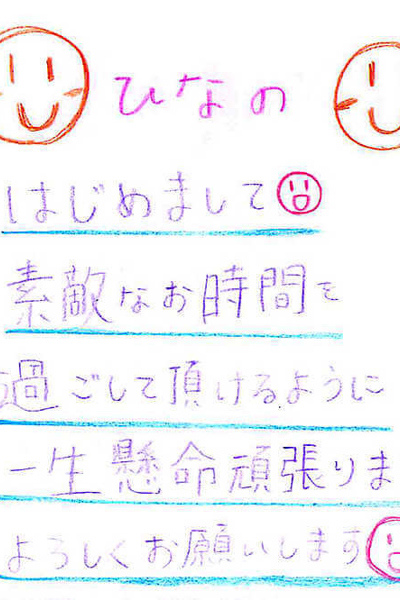 ひなの
はじめまして
素敵なお時間を
過ごして頂けるように
一生懸命頑張りま
よろしくお願いします